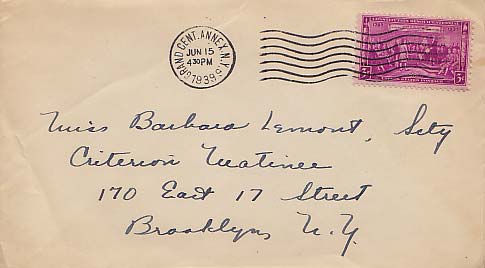 GRAND CENT. ANNEX, N.Y.
JUN 15
4 30 PM
1938
3¢ 3¢
Miss Barbara Lemont, Scty
Criterion Matinee
170 East 17 Street
Brooklyn, N.Y.